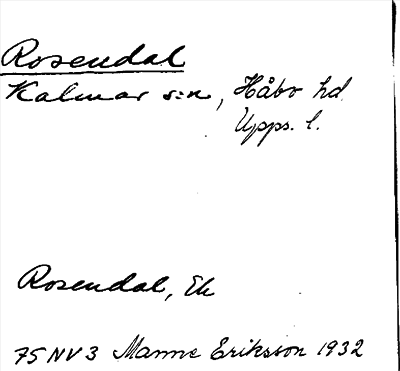 Rosendal
Kalmar s:n, Håbo hd
Upps. l.
Rosendal, Ek
75 NV 3 Manne Eriksson 1932